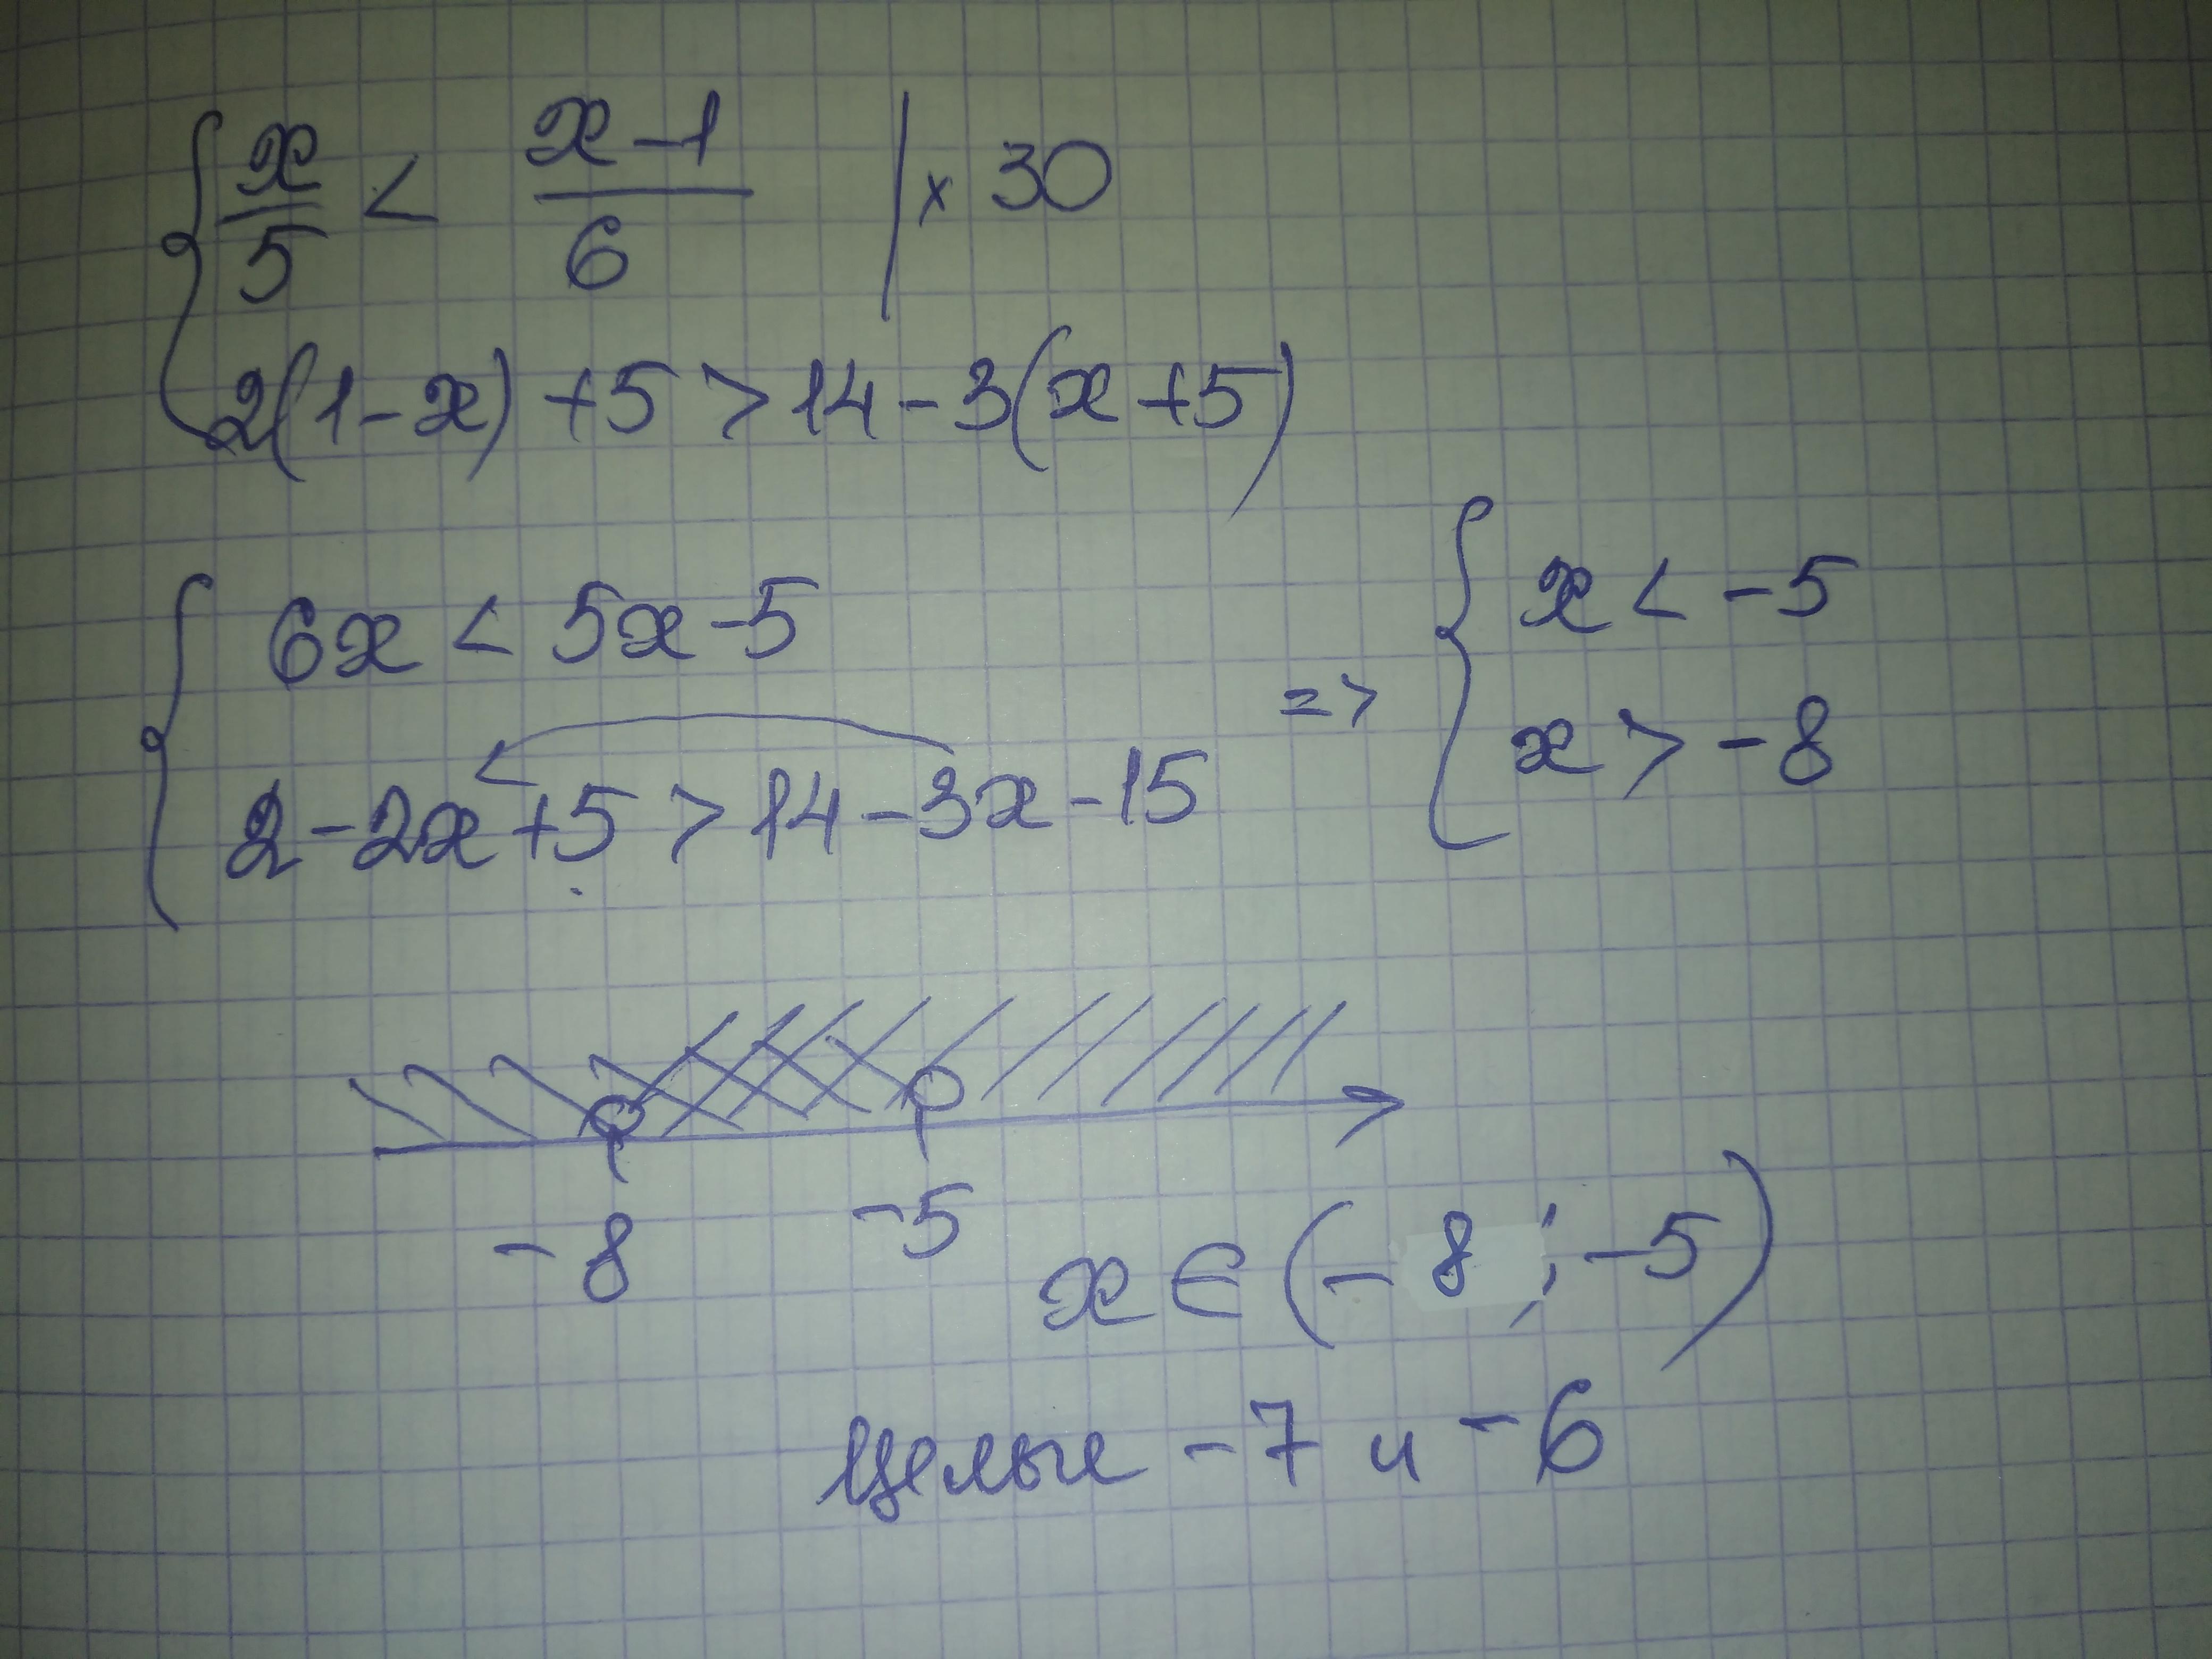 x/5 < (x-1)/6 | × 30
2(1-x)+5>14-3(x+5)
6x < 5x-5
2-2x+5>14-3x-15
=> x < -5
x > -8
-8 -5
x ∈ (-8; -5)
Целые -7 и -6